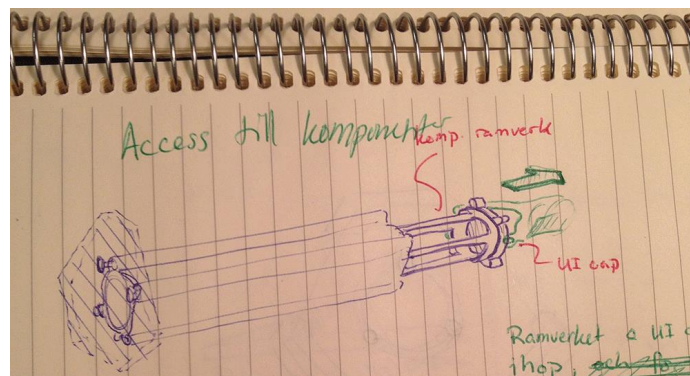 Access till komponenter
komp. ramverk
UI cap
Ramverket a UI
ihop,